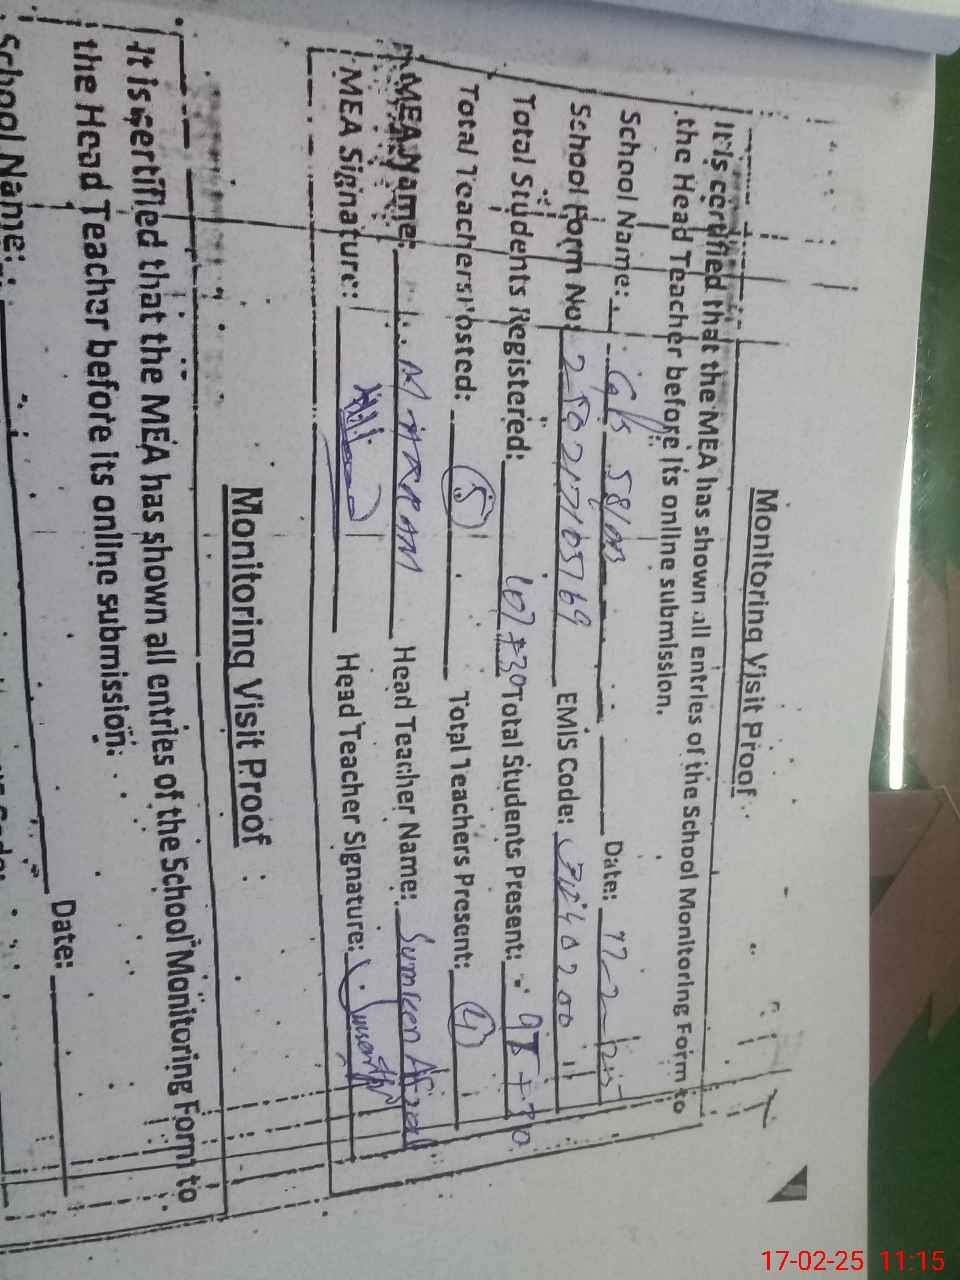 Monitoring Visit Proof
It is certified that the MEA has shown all entries of the School Monitoring Form to
the Head Teacher before its online submission.
School Name: Date: 17-2-25
School Form No: EMIS Code:
Total Students Registered: 107+30 Total Students Present: +30
Total Teachers Posted: 5 Total Teachers Present: 4
MEA Name: M AKRAM Head Teacher Name: Afzal
MEA Signature: Head Teacher Signature:
Monitoring Visit Proof
It is certified that the MEA has shown all entries of the School Monitoring Form to
the Head Teacher before its online submission.
School Name: Date:
17-02-25 11:15